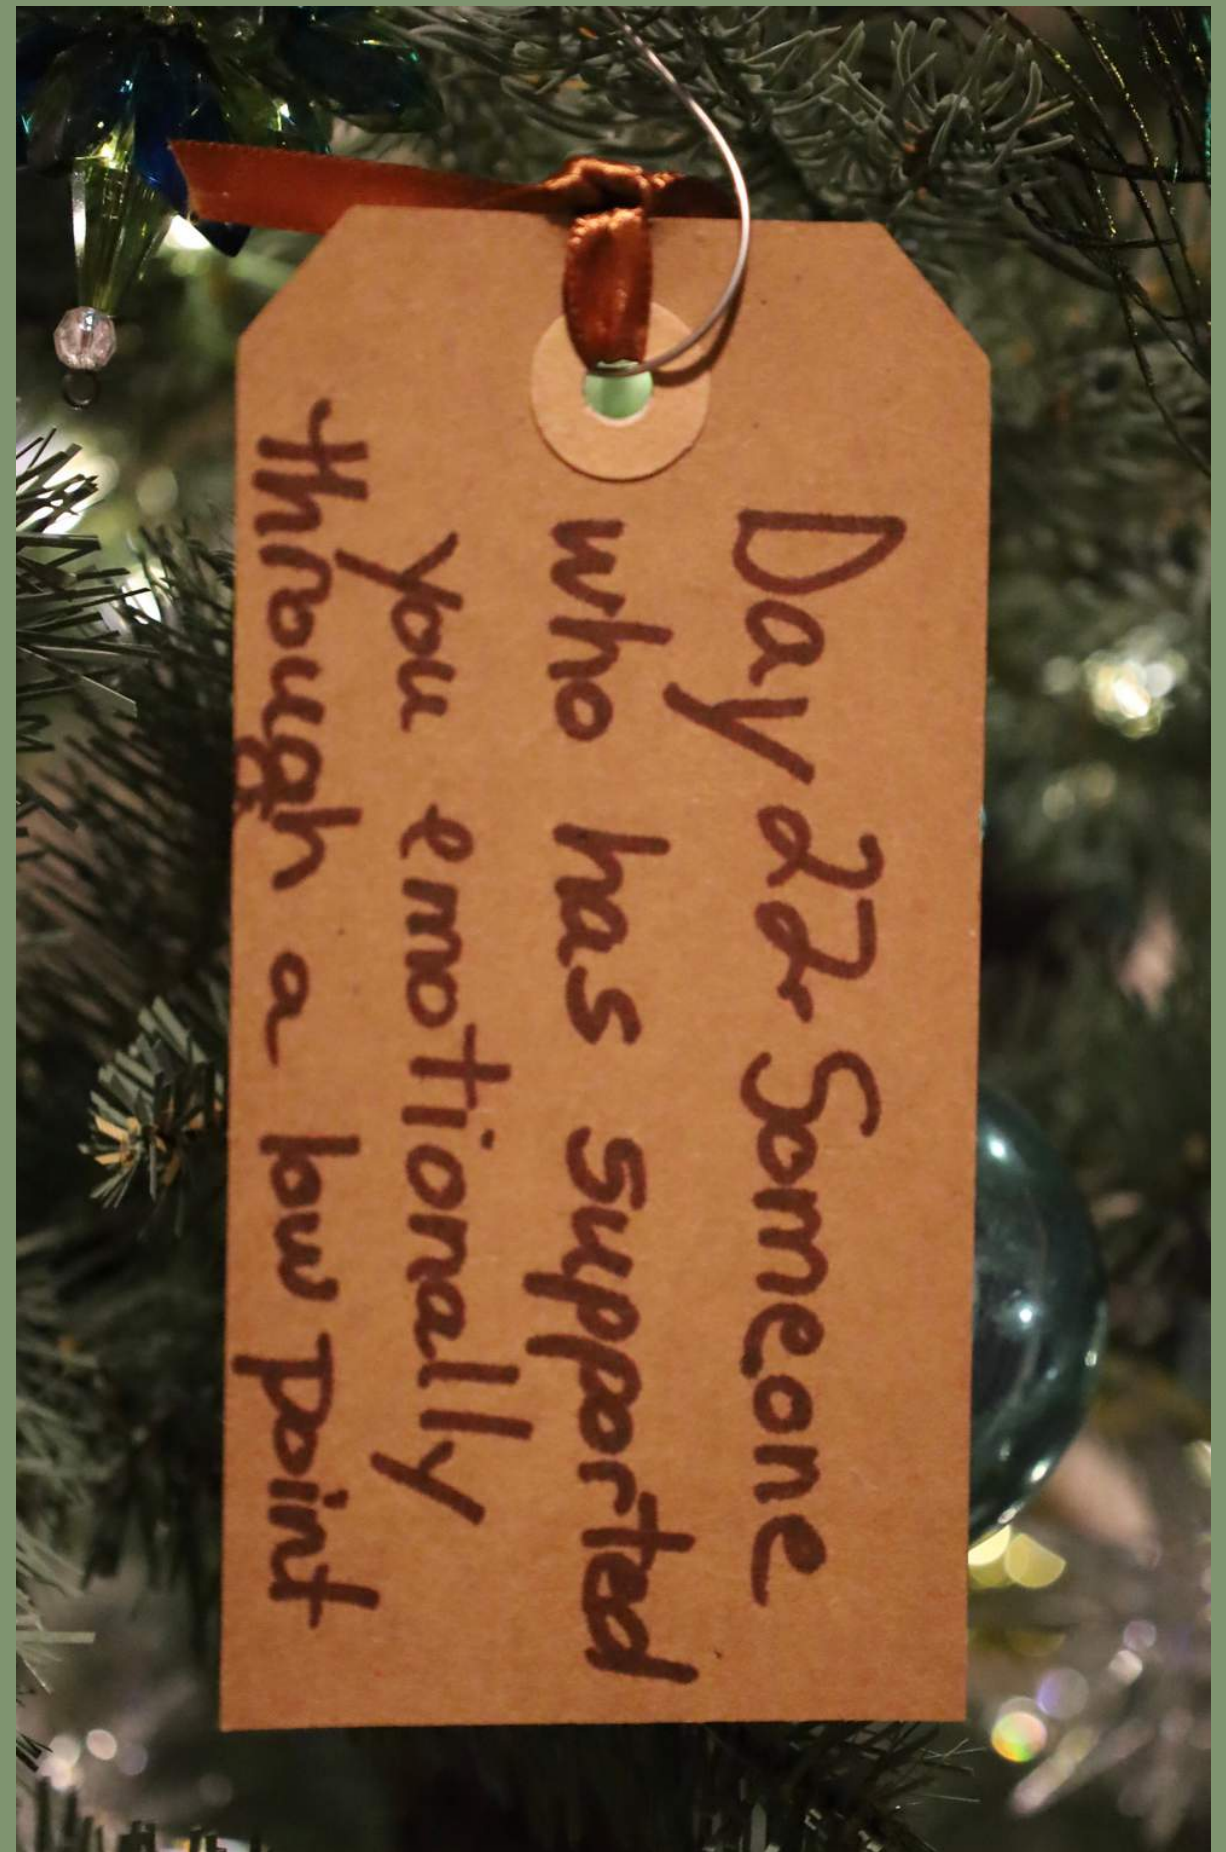 Day 22 Someone
who has supported
you emotionally
through a low point